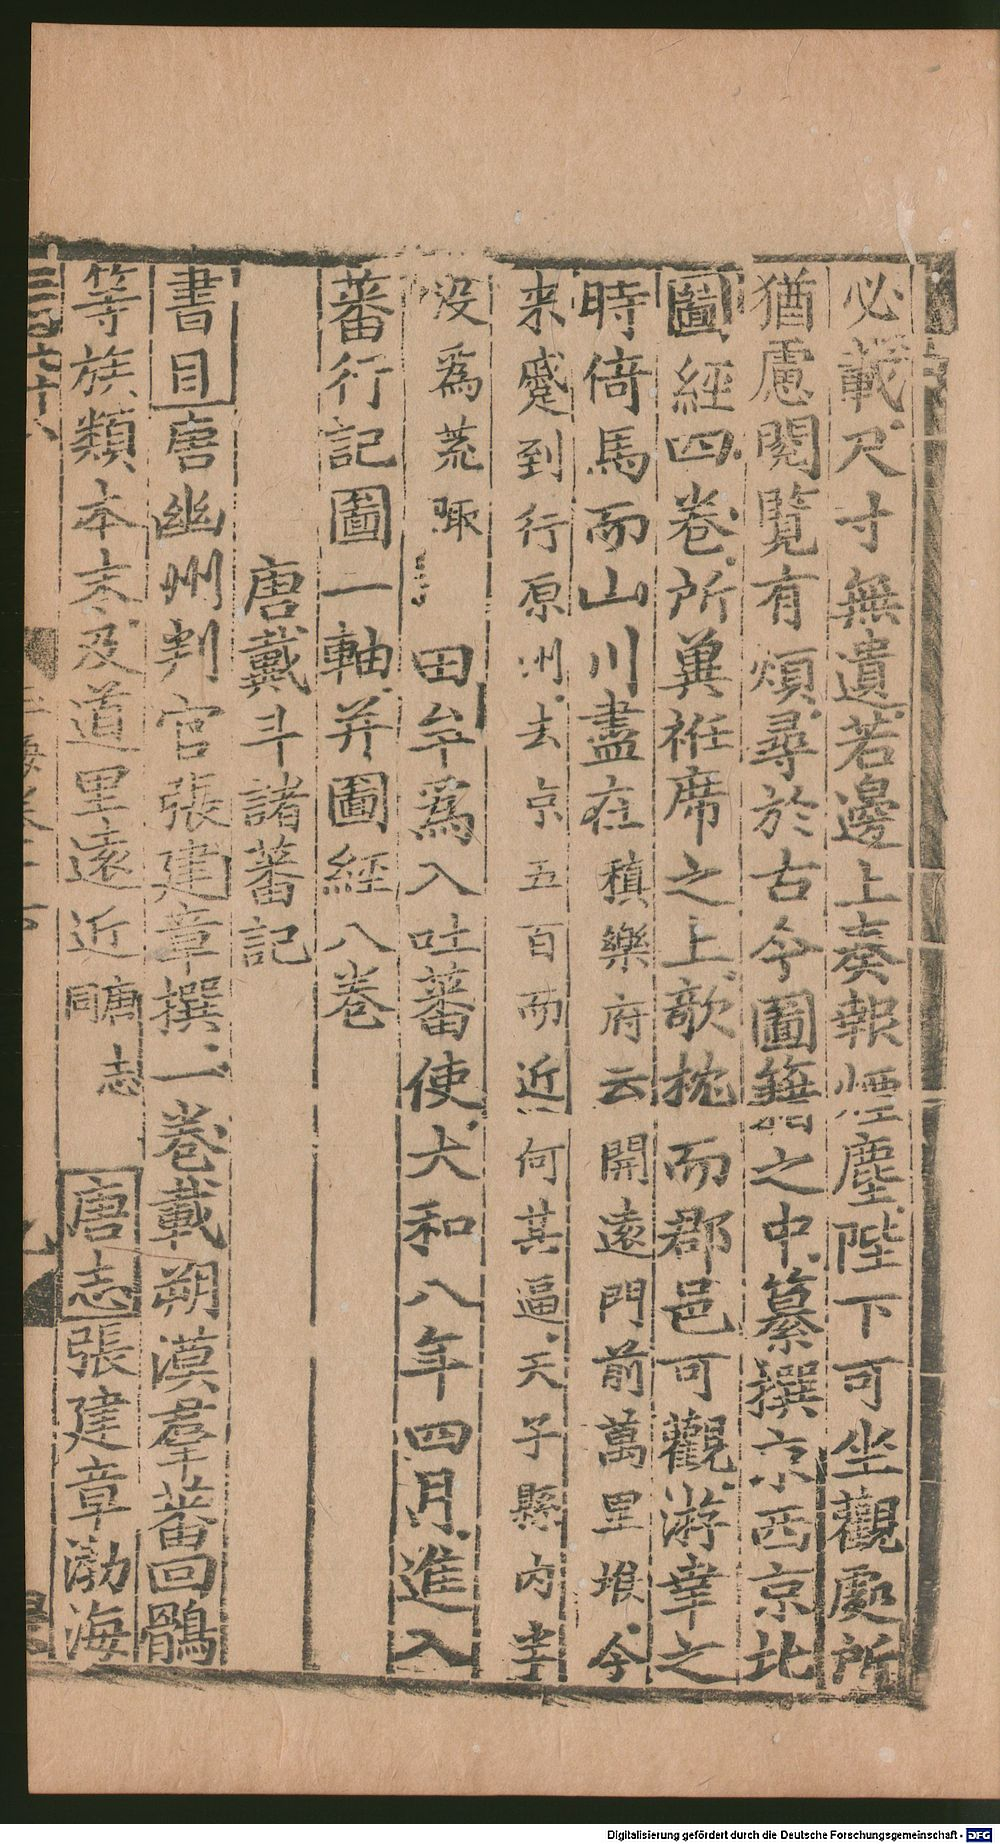 必載尺寸無遺若邊上奏報煙塵陛下可坐觀處所
猶慮閱覽有煩尋於古今圖籍之中纂撰京西京北
圖經四卷所冀袵席之上欹枕而郡邑可觀游幸之
時倚馬而山川盡在稹樂府云開遠門前萬里堠今
来蹙到行原州去京五百而近何其逼天子縣内半
没爲荒陬
田牟爲入吐蕃使大和八年四月進入
蕃行記圖一軸并圖經八卷
唐戴斗諸蕃記
書目唐幽州判官張建章撰一卷載朔漠羣蕃回鶻
等族類本末及道里遠近唐志同
唐志張建章渤海
Digitalisierung gefördert durch die Deutsche Forschungsgemeinschaft - DFG